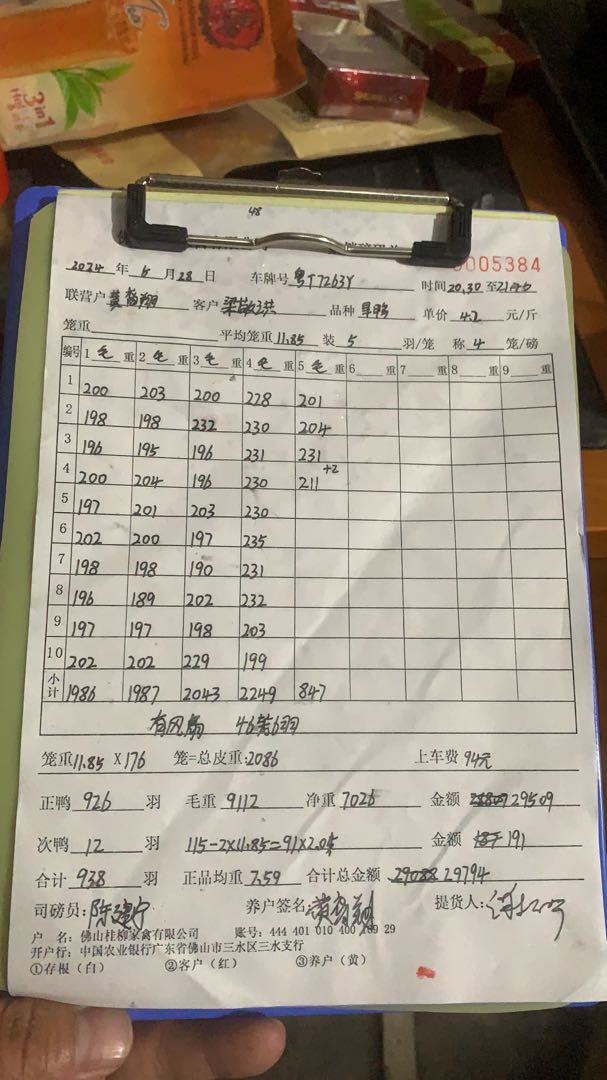 3 in 1
48
0005384
2024 年 5 月 28 日 车牌号 粤T7263Y 时间 20.30 至 21:40
联营户 黄智翔 客户 梁敬洪 品种 旱鸭 单价 4.2 元/斤
笼重 平均笼重 11.85 装 5 羽/笼 称 4 笼/磅
编号 1 毛 重 2 毛 重 3 毛 重 4 毛 重 5 毛 重 6 重 7 重 8 重 9 重
1 200 203 200 228 201
2 198 198 232 230 204
3 196 195 196 231 231
4 200 204 196 230 211 +2
5 197 201 203 230
6 202 200 197 235
7 198 198 190 231
8 196 189 202 232
9 197 197 198 203
10 202 202 229 199
小计 1986 1987 2043 2249 847
有风扇 46笼6羽
笼重 11.85 X 176 笼=总皮重: 2086 上车费 94元
正鸭 926 羽 毛重 9112 净重 7026 金额 29509
次鸭 12 羽 115-2X11.85=91X2.05 金额 191
合计 938 羽 正品均重 7.59 合计总金额 29794
司磅员: 陈建宁 养户签名 黄智翔 提货人:
户 名: 佛山桂柳家禽有限公司 账号: 444 401 010 400 169 29
开户行: 中国农业银行广东省佛山市三水区三水支行
①存根(白) ②客户(红) ③养户(黄)